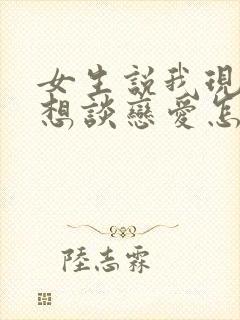 女生說我現
想談戀愛怎
陸志霖